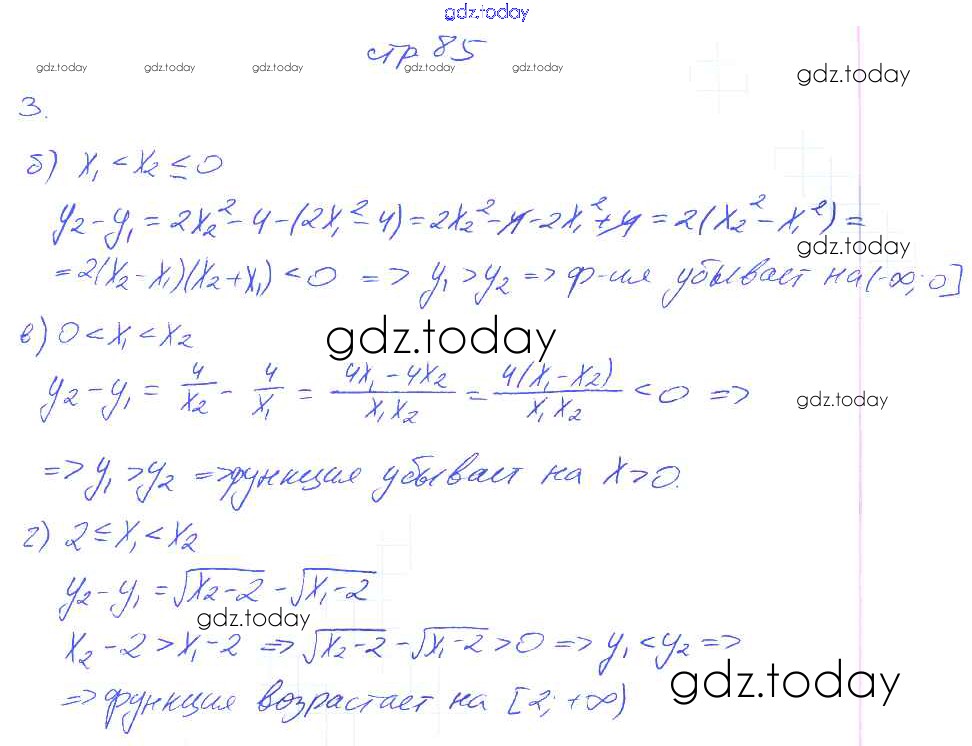 gdz.today
стр 85
gdz.today gdz.today gdz.today gdz.today gdz.today gdz.today
3.
б) x₁ < x₂ ≤ 0
y₂ - y₁ = 2x₂² - 4 - (2x₁² - 4) = 2x₂² - 4 - 2x₁² + 4 = 2(x₂² - x₁²) =
gdz.today
= 2(x₂ - x₁)(x₂ + x₁) < 0 => y₁ > y₂ => ф-ия убывает на (-∞; 0]
в) 0 < x₁ < x₂
gdz.today
y₂ - y₁ = 4/x₂ - 4/x₁ = (4x₁ - 4x₂)/(x₁x₂) = 4(x₁ - x₂)/(x₁x₂) < 0 =>
gdz.today
=> y₁ > y₂ => функция убывает на x > 0.
г) 2 ≤ x₁ < x₂
y₂ - y₁ = √(x₂ - 2) - √(x₁ - 2)
gdz.today
x₂ - 2 > x₁ - 2 => √(x₂ - 2) - √(x₁ - 2) > 0 => y₁ < y₂ =>
gdz.today
=> функция возрастает на [2; +∞)